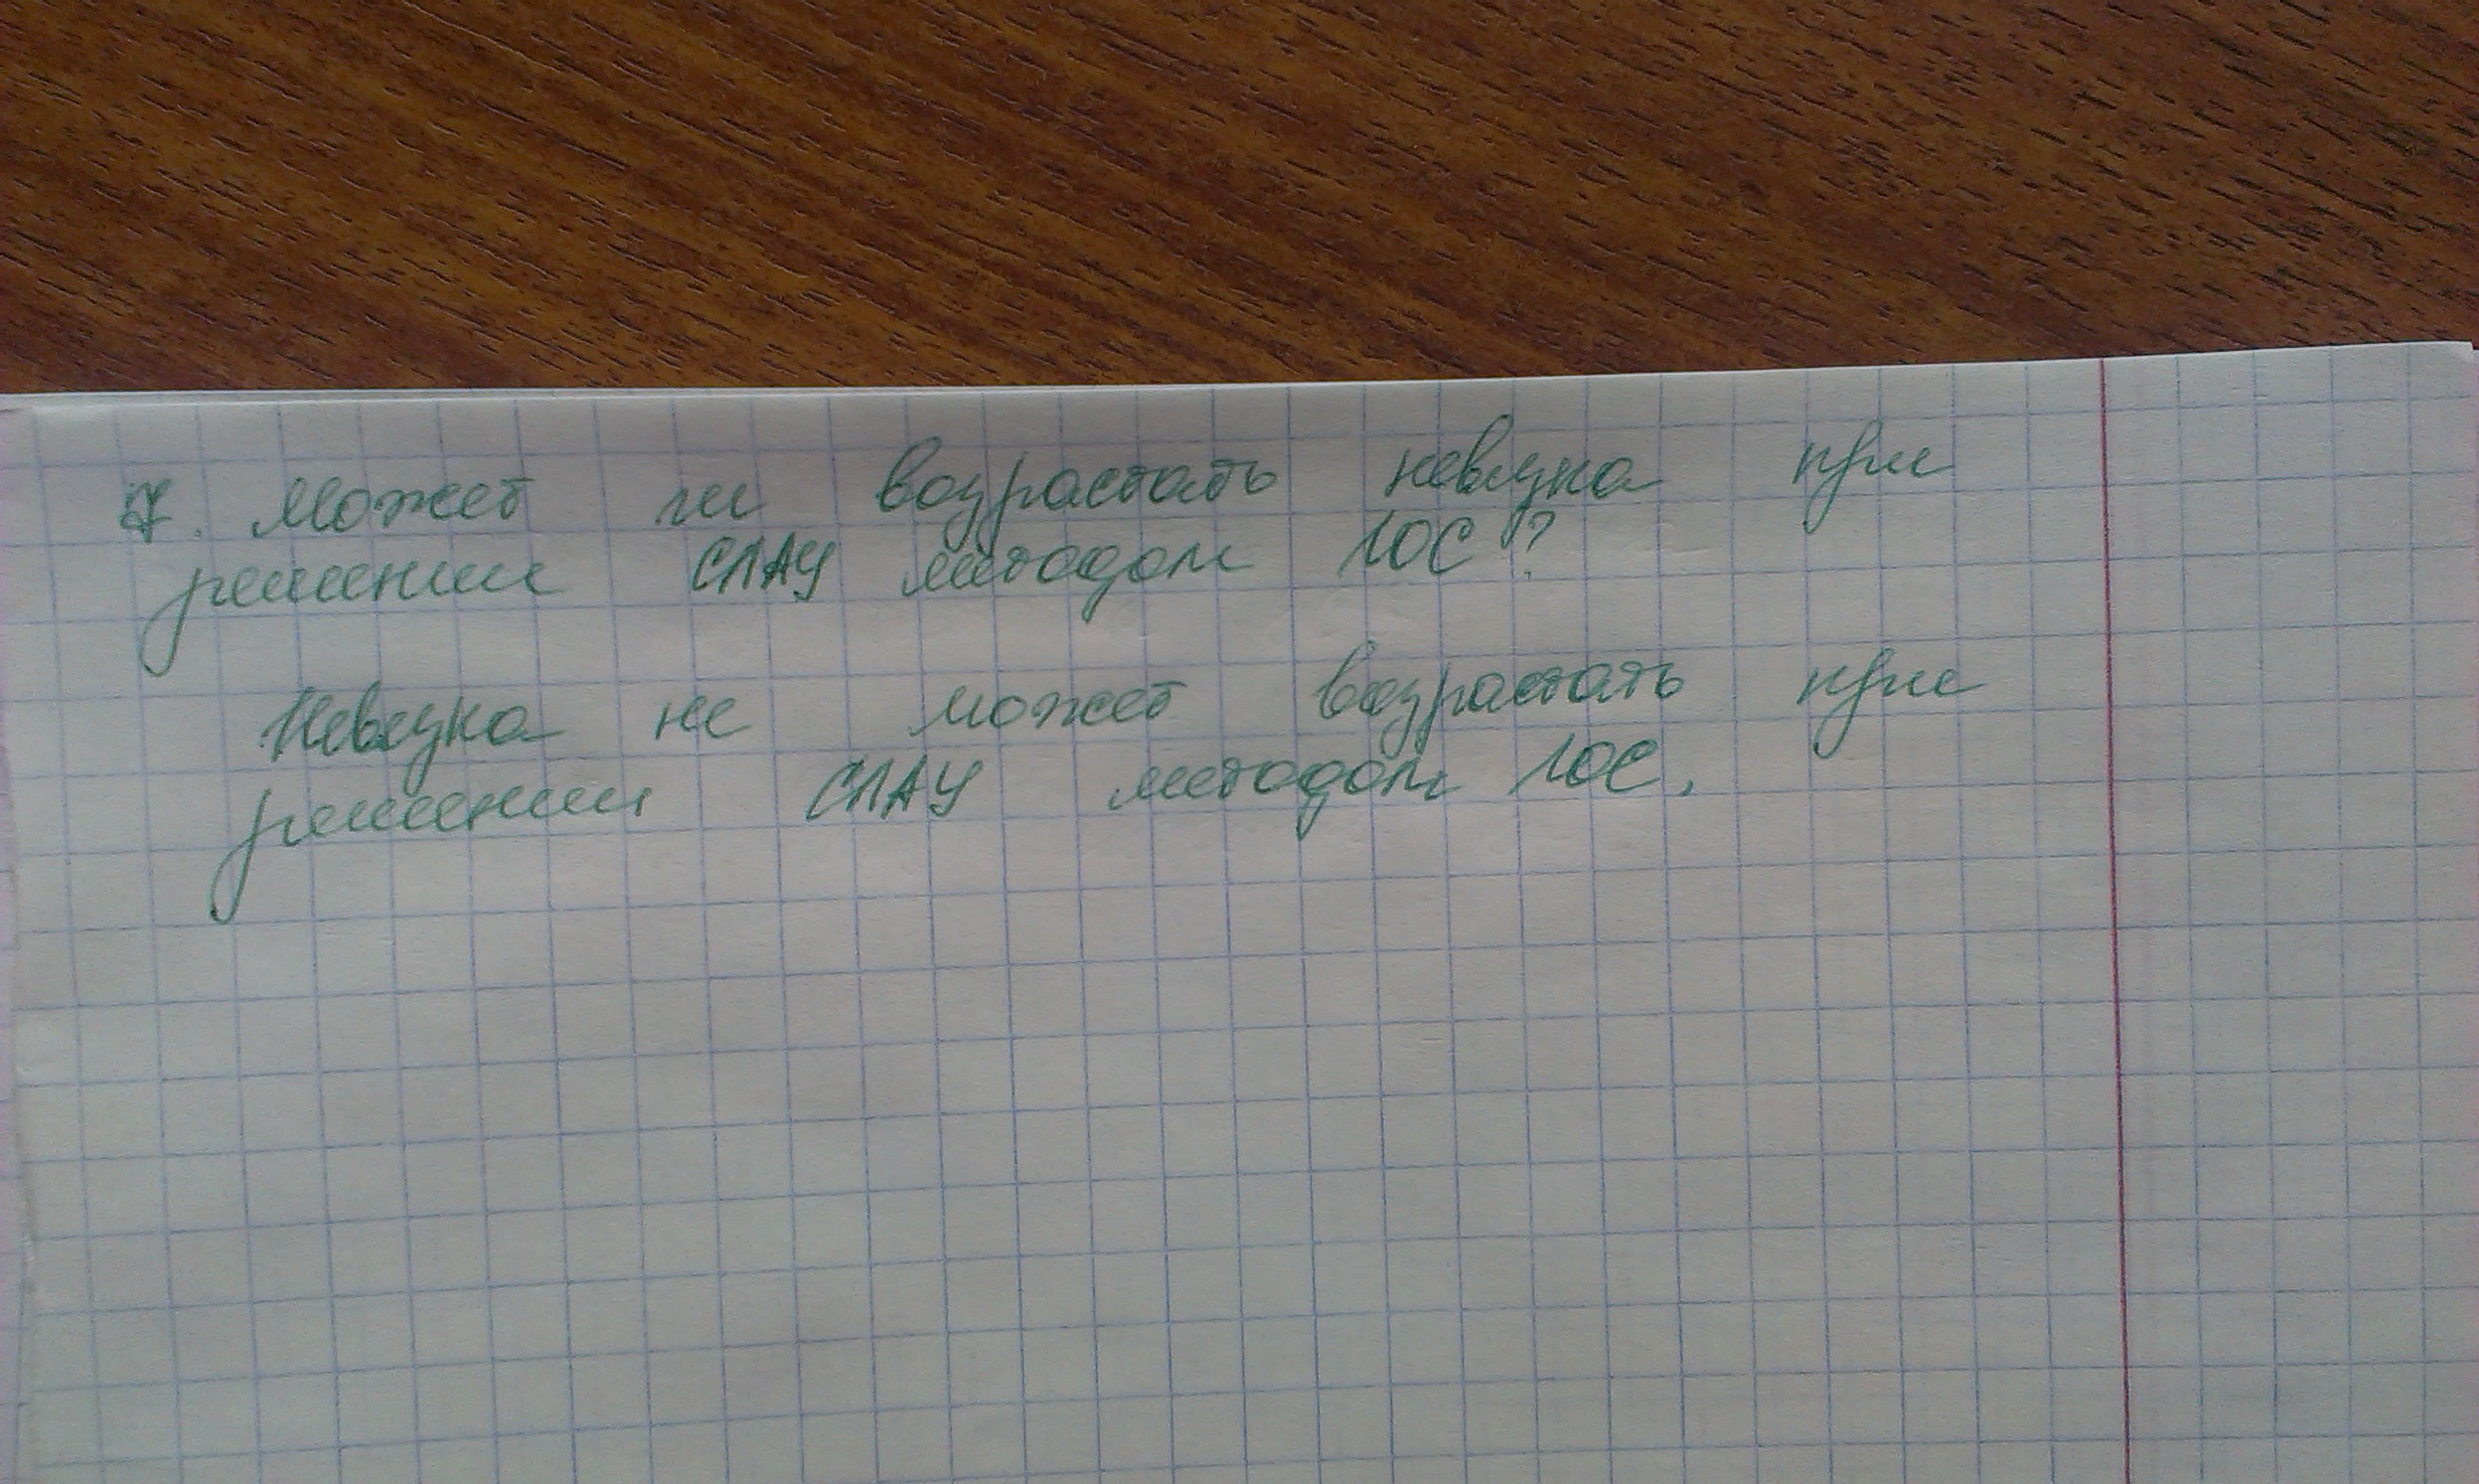 7. Может ли возрастать невязка при
решении СЛАУ методом ЛОС?
Невязка не может возрастать при
решении СЛАУ методом ЛОС.